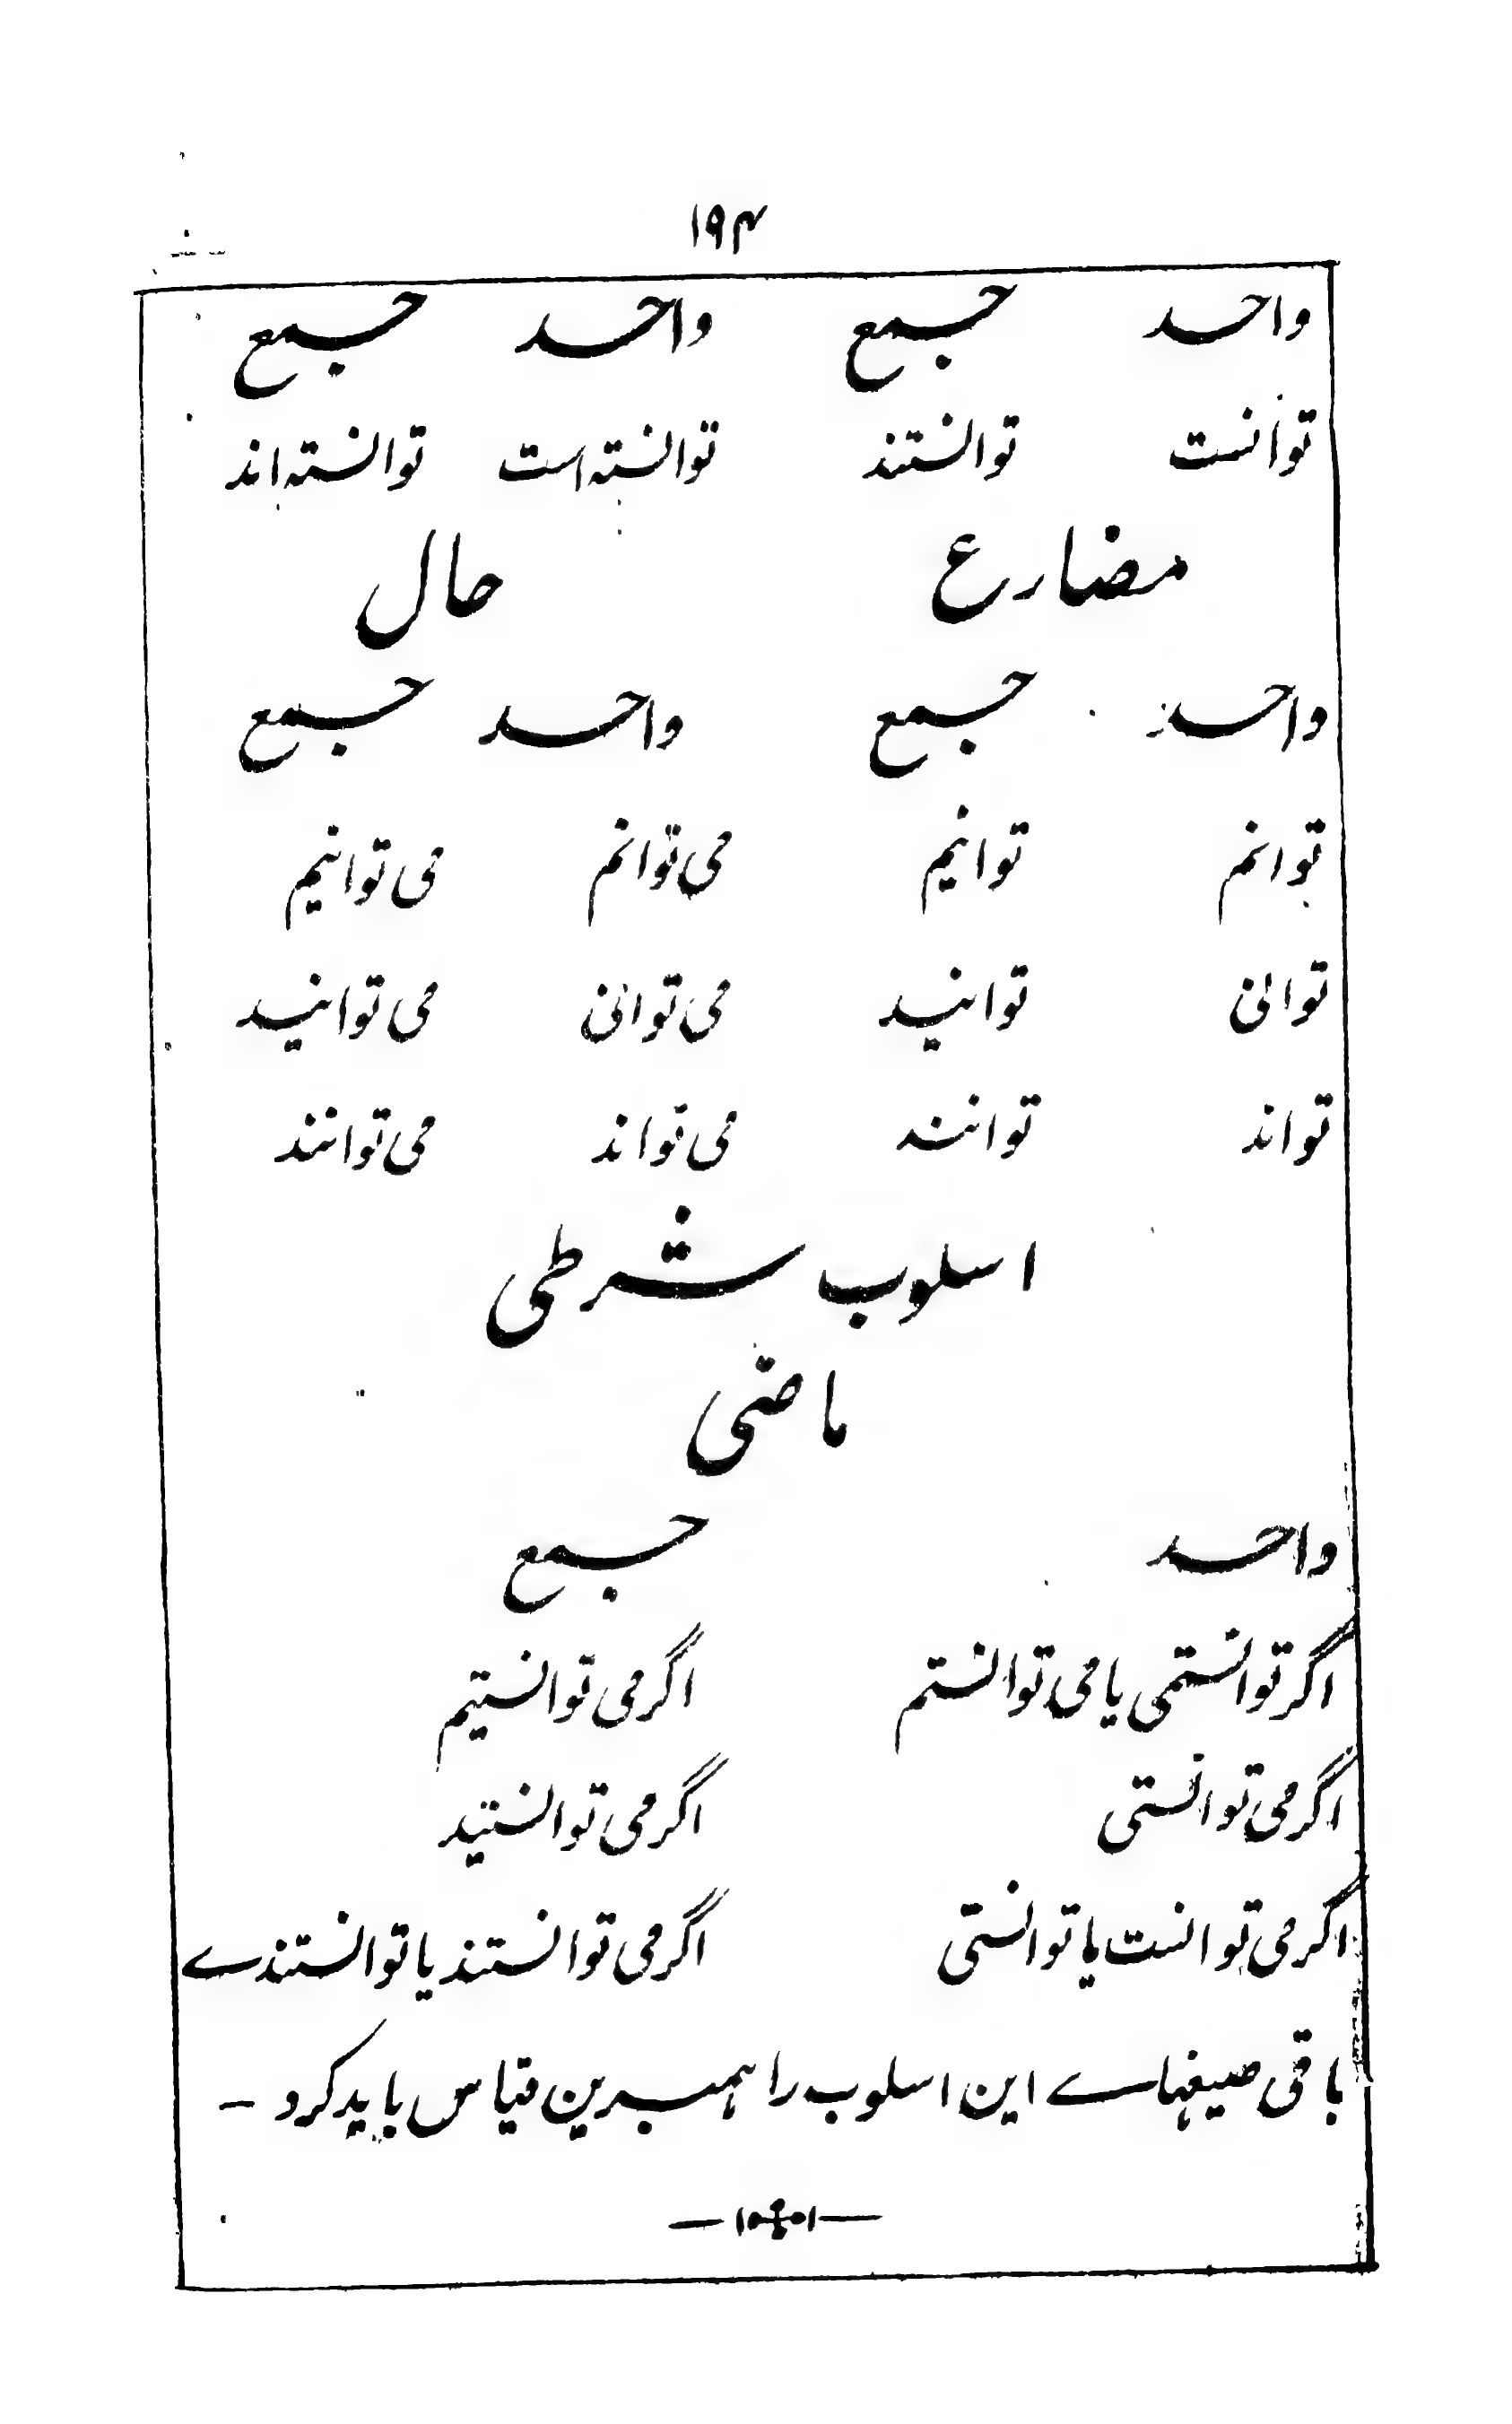 ۱۹۴
واحد جمع واحد جمع
توانست توانستند توانسته است توانسته اند
مضارع حال
واحد جمع واحد جمع
توانم توانیم می توانم می توانیم
توانی توانید می توانی می توانید
تواند توانند می تواند می توانند
اسلوب شرطی
ماضی
واحد جمع
اگر توانستمی یا می توانستم اگر می توانستیم
اگر می توانستی اگر می توانستید
اگر می توانست یا توانستی اگر می توانستند یا توانستندے
باقی صیغہاے این اسلوب را ہمبرین قیاس باید کرد -